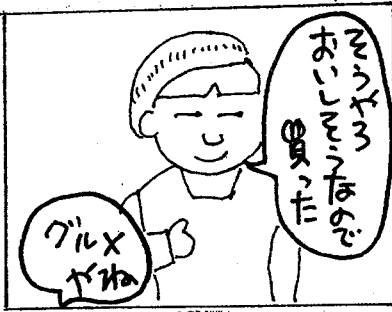 そうやろ
おいしそうなので
買った
グルメ
やね